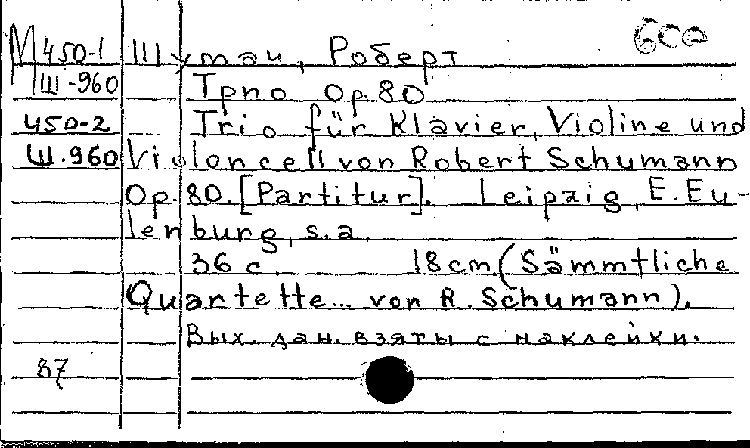 М 450-1 Шуман, Роберт 600
Ш-960 Трио Op. 80
450-2 Trio für Klavier, Violine und
Ш.960 Violoncell von Robert Schumann
Op. 80. [Partitur]. Leipzig, E. Eu-
lenburg, s.a.
36 с. 18 cm. (Sämmtliche
Quartette... von R. Schumann).
Вых. дан. взяты с наклейки.
87